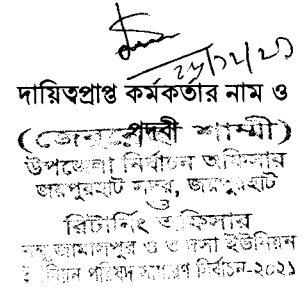 ২৮/১২/২১
দায়িত্বপ্রাপ্ত কর্মকর্তার নাম ও
পদবী
(জেবুন্নেছা শাম্মী)
উপজেলা নির্বাচন অফিসার
জয়পুরহাট সদর, জয়পুরহাট
ও
রিটার্নিং অফিসার
জামালপুর ও ভাদসা ইউনিয়ন
ইউনিয়ন পরিষদ সাধারণ নির্বাচন-২০২১